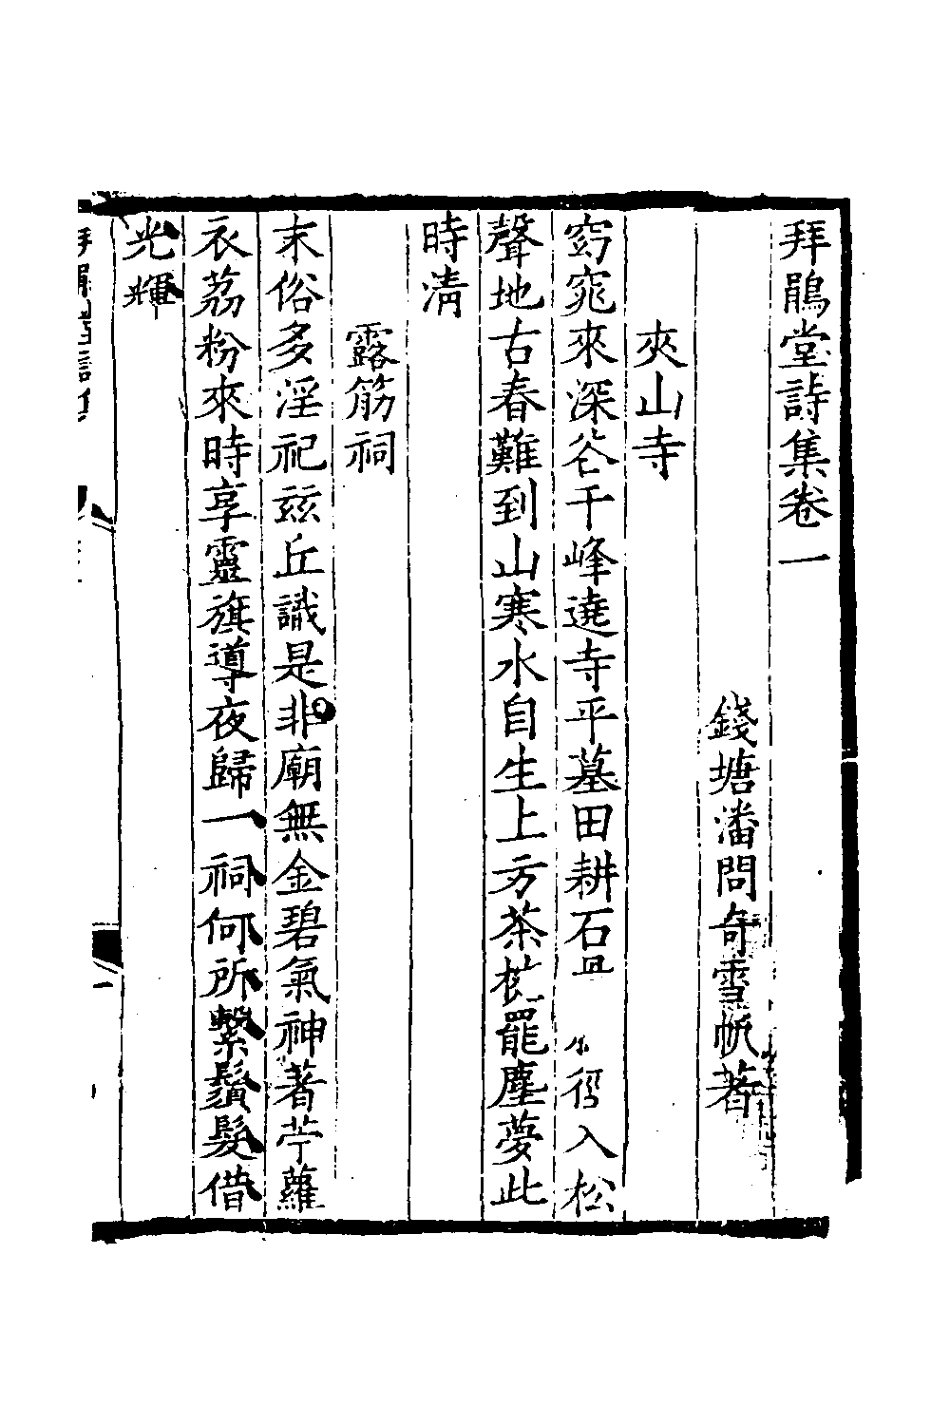 拜鵑堂詩集卷一
錢塘潘問奇雪帆著
夾山寺
窈窕來深谷千峰遶寺平墓田耕石 入松
聲地古春難到山寒水自生上方茶 罷塵夢此
時清
露筋祠
末俗多淫祀玆丘識是非廟無金碧氣神著苧蘿
衣荔粉來時享靈旗導夜歸一祠何所繫鬚髮借
光輝